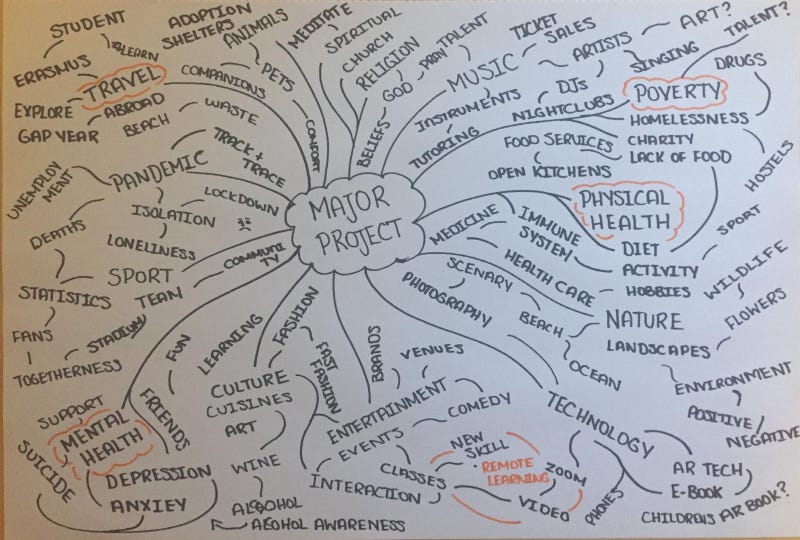 STUDENT
LEARN
ERASMUS
TRAVEL
EXPLORE
ABROAD
GAP YEAR
BEACH
WASTE
COMPANIONS
ADOPTION
SHELTERS
ANIMALS
PETS
COMFORT
MEDITATE
SPIRITUAL
CHURCH
RELIGION
GOD
PRAY
BELIEFS
TALENT
MUSIC
INSTRUMENTS
TUTORING
TICKET
SALES
ARTISTS
ART?
SINGING
TALENT?
DJs
NIGHTCLUBS
POVERTY
DRUGS
HOMELESSNESS
HOSTELS
CHARITY
LACK OF FOOD
FOOD SERVICES
OPEN KITCHENS
TRACK +
TRACE
PANDEMIC
UNEMPLOY
MENT
LOCKDOWN
ISOLATION
DEATHS
LONELINESS
COMMUNI
TY
MAJOR
PROJECT
PHYSICAL
HEALTH
MEDICINE
IMMUNE
SYSTEM
HEALTH CARE
DIET
ACTIVITY
SPORT
HOBBIES
SPORT
TEAM
STATISTICS
STADIUM
FANS
TOGETHERNESS
SCENARY
PHOTOGRAPHY
BEACH
OCEAN
NATURE
LANDSCAPES
WILDLIFE
FLOWERS
ENVIRONMENT
POSITIVE
NEGATIVE
FUN
FRIENDS
SUPPORT
MENTAL
HEALTH
SUICIDE
DEPRESSION
ANXIEY
LEARNING
FASHION
FAST
FASHION
CULTURE
CUISINES
ART
WINE
ALCOHOL
ALCOHOL AWARENESS
BRANDS
VENUES
ENTERTAINMENT
COMEDY
EVENTS
CLASSES
INTERACTION
NEW
SKILL
REMOTE
LEARNING
ZOOM
VIDEO
TECHNOLOGY
PHONES
AR TECH
E-BOOK
CHILDRENS AR BOOK?